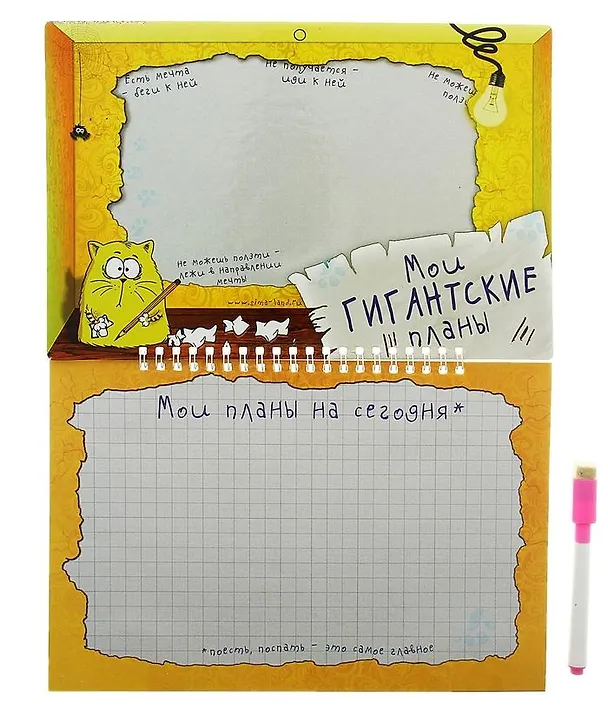 Есть мечта
- беги к ней
Не получается -
иди к ней
Не можешь
ползт
Не можешь ползти -
лежи в направлении
мечты
www.sima-land.ru
Мои
ГИГАНТСКИЕ
планы
Мои планы на сегодня*
*поесть, поспать - это самое главное